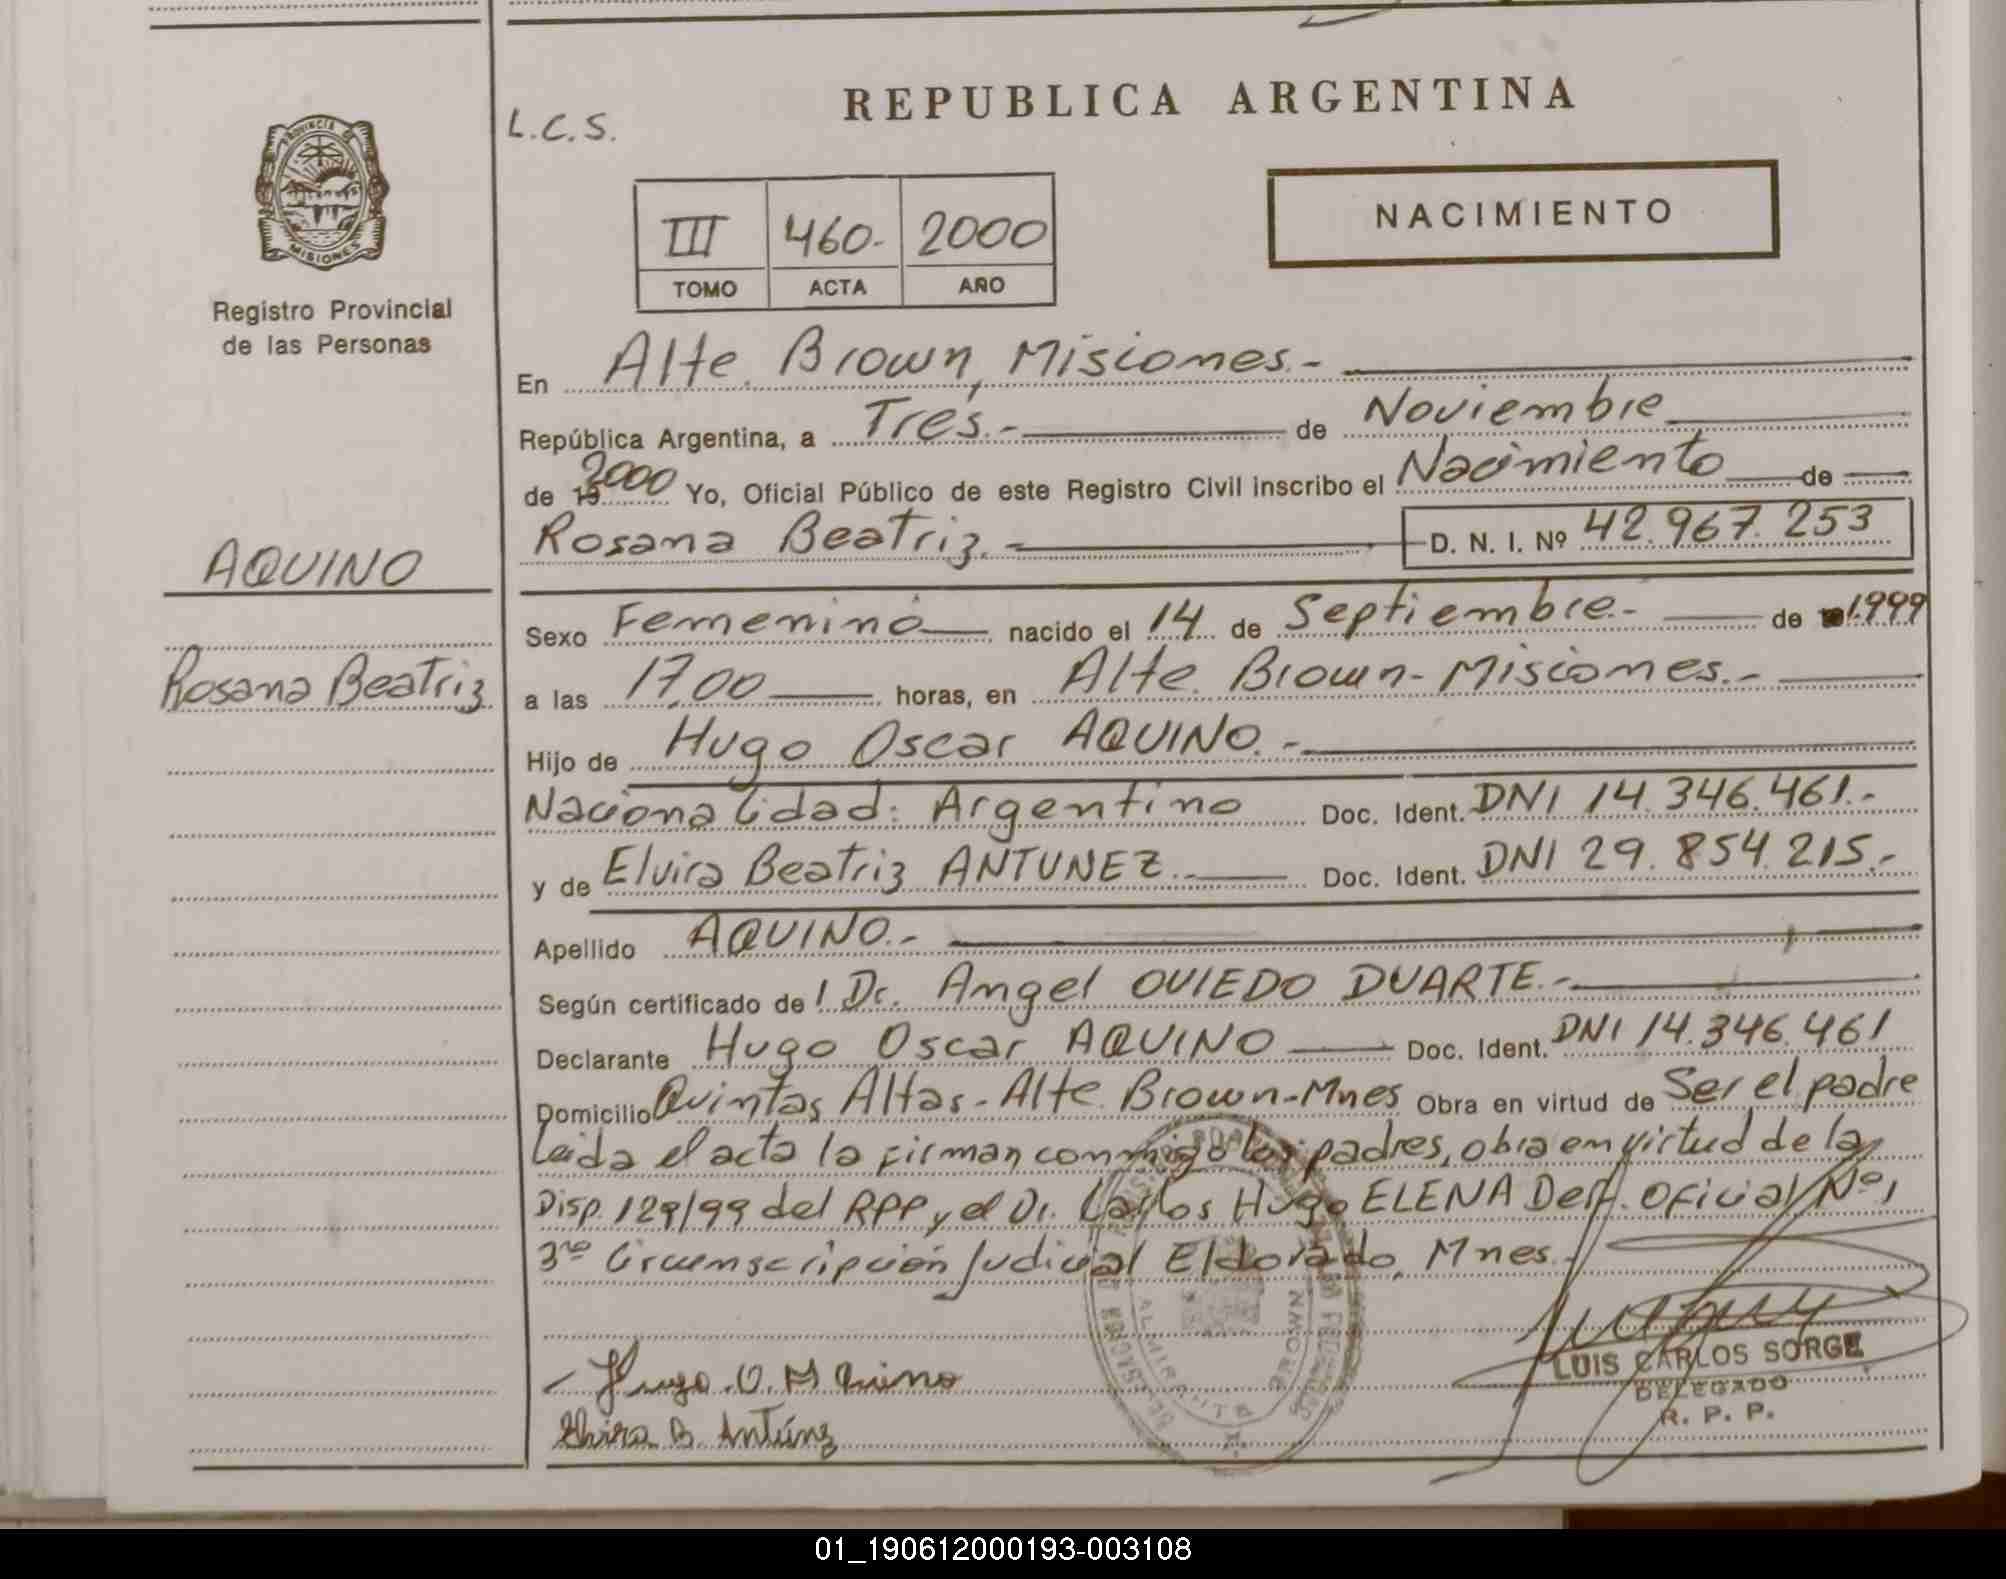 REPUBLICA ARGENTINA
L.C.S.
PROVINCIA DE
MISIONES
Registro Provincial
de las Personas
NACIMIENTO
III 460.- 2000
TOMO ACTA AÑO
En Alte. Brown, Misiones.-
República Argentina, a Tres.- de Noviembre
de 19 2000 Yo, Oficial Público de este Registro Civil inscribo el Nacimiento de
Rosana Beatriz.- D. N. I. Nº 42.967.253
AQUINO
Rosana Beatriz
Sexo Femenino nacido el 14 de Septiembre.- de 1.999
a las 17,00 horas, en Alte. Brown-Misiones.-
Hijo de Hugo Oscar AQUINO.-
Nacionalidad: Argentino Doc. Ident. DNI 14.346.461.-
y de Elvira Beatriz ANTUNEZ.- Doc. Ident. DNI 29.854.215.-
Apellido AQUINO.-
Según certificado de Dr. Angel OVIEDO DUARTE.-
Declarante Hugo Oscar AQUINO Doc. Ident. DNI 14.346.461
Domicilio Quintas Altas-Alte. Brown-Mnes Obra en virtud de Ser el padre
leida el acta la firman conmigo los padres, obra en virtud de la
Disp. 129/99 del RPP y el Dr. Carlos Hugo ELENA Def. Oficial Nº1
3ra Circunscripción Judicial Eldorado, Mnes.-
Hugo. O. Aquino
Elvira B. Antúnz
ALMIRANTE BROWN
LUIS CARLOS SORGE
DELEGADO
R. P. P.
01_190612000193-003108